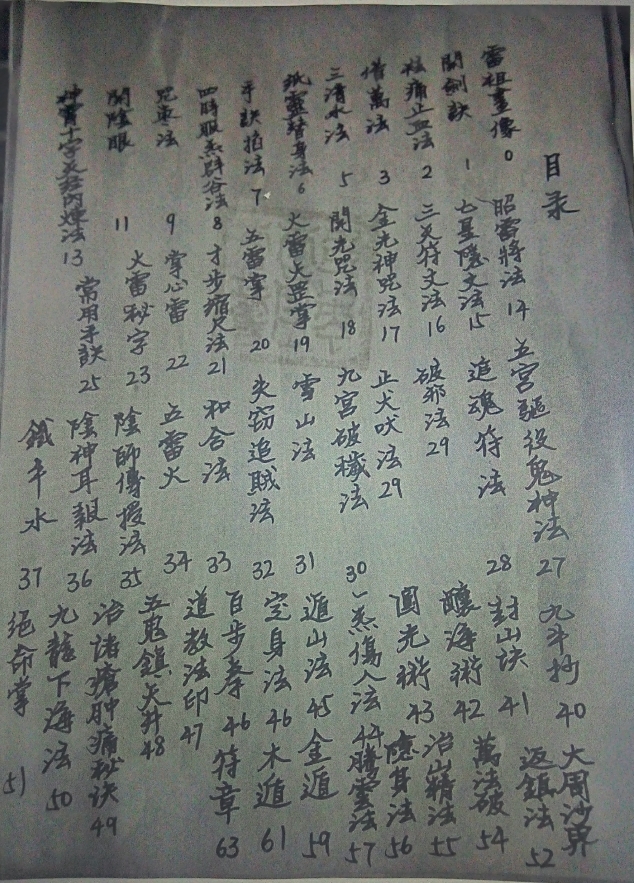 目录
雷祖畫像 0
開劍訣 1
祛痛止血法 2
借萬法 3
三清水法 5
紙靈替身法 6
手訣拍法 7
四時服炁辟谷法 8
咒棗法 9
開陰眼 11
十字天經內煉法 13
昭雷將法 14
七星隱文法 15
三天符文法 16
金光神咒法 17
開光咒法 18
火雷火罡掌 19
五雷掌 20
才步缩尺法 21
掌心雷 22
火雷秘字 23
常用手訣 25
五宫驅役鬼神法 27
追魂符法 28
破邪法 29
正犬吠法 29
九宫破穢法 30
雪山法 31
失窃追賊法 32
和合法 33
五雷火 34
陰師傳授法 35
陰神耳報法 36
鐵牛水 37
九斗抄 40
封山诀 41
釀海術 42
圓光術 43
一炁傷人法 44
遁山法 45
定身法 46
百步拳 46
道教法印 47
五鬼鎮天井 48
治諸瘡肿痛秘诀 49
九龍下海法 50
絕命掌 51
大周沙界
返鎮法 52
萬法破 54
治山精法 55
隱身法 56
騰雲法 57
金遁 59
木遁 61
符章 63